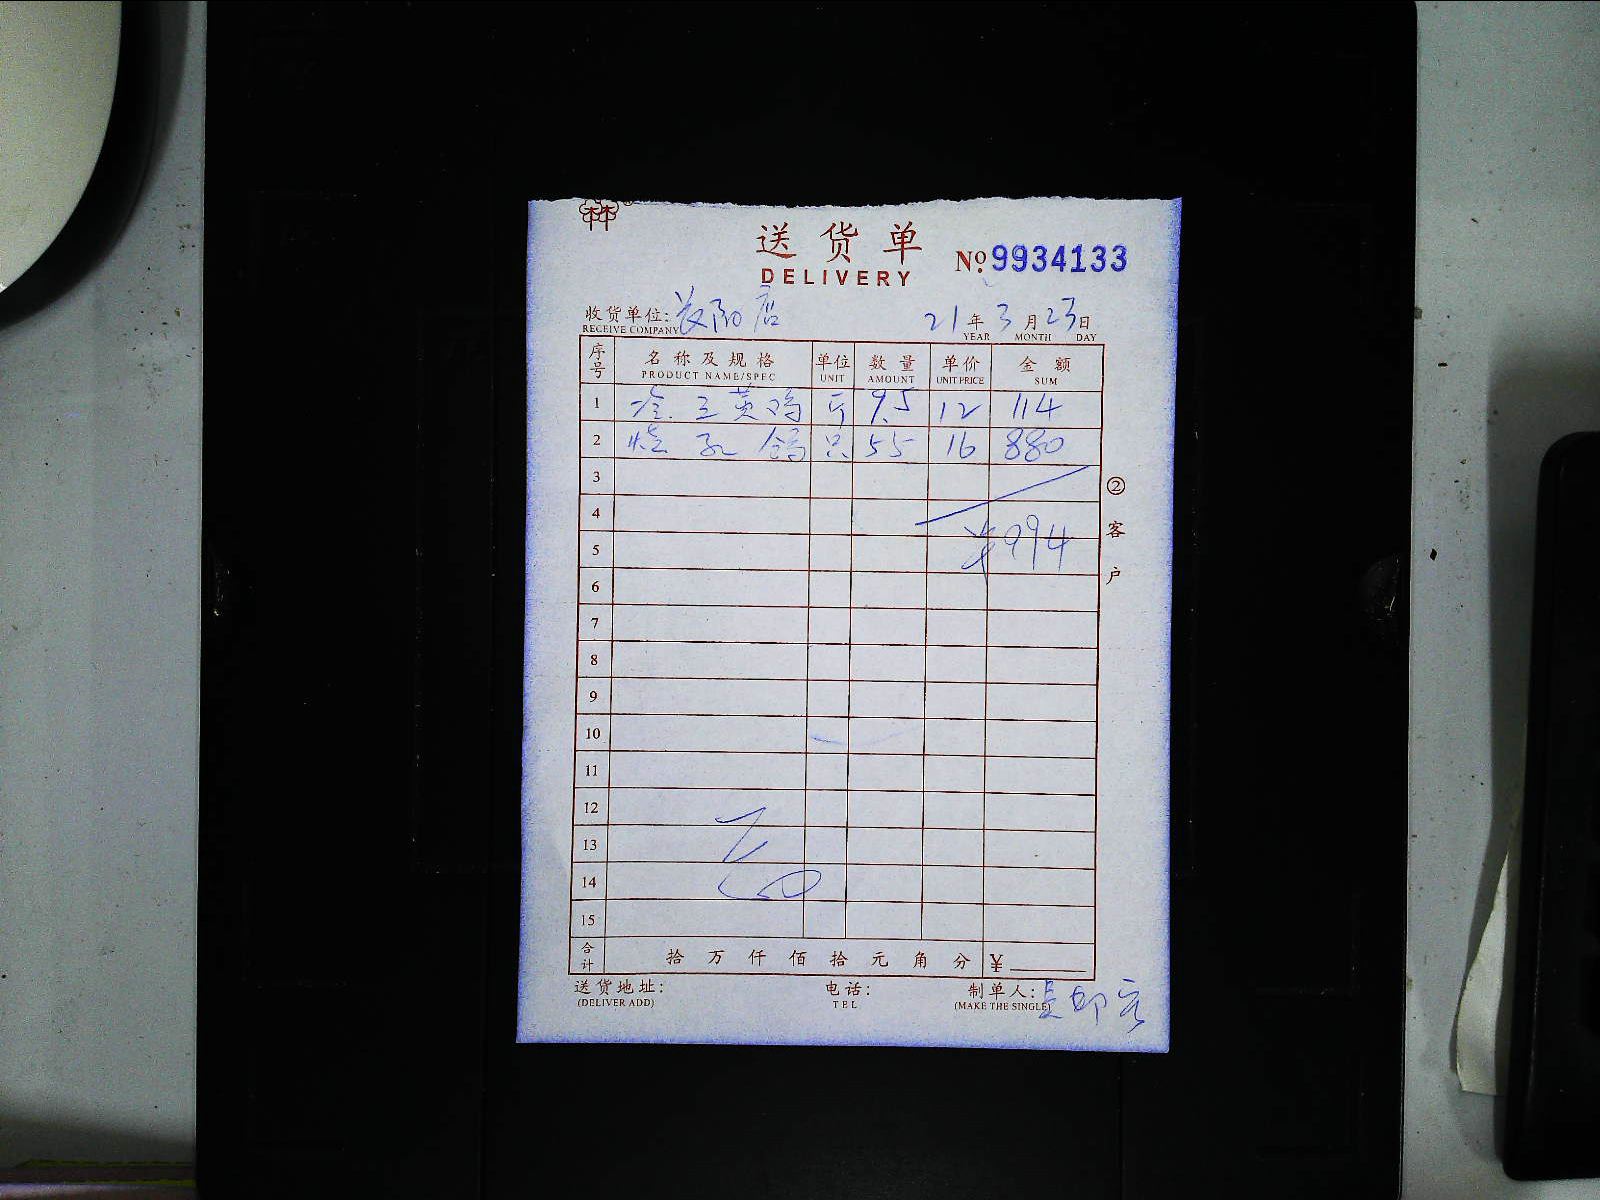 林
送货单
DELIVERY
№ 9934133
收货单位: 长阳店 21年3月23日
RECEIVE COMPANY YEAR MONTH DAY
序号 名称及规格 单位 数量 单价 金额
PRODUCT NAME/SPEC UNIT AMOUNT UNIT PRICE SUM
1 冷.三黄鸡 斤 9.5 12 114
2 烧乳鸽 只 55 16 880
3
4
¥994
5
6
7
8
9
10
11
12
13
14
15
② 客户
合计 拾 万 仟 佰 拾 元 角 分 ¥
送货地址: 电话: 制单人:
(DELIVER ADD) TEL (MAKE THE SINGLE)